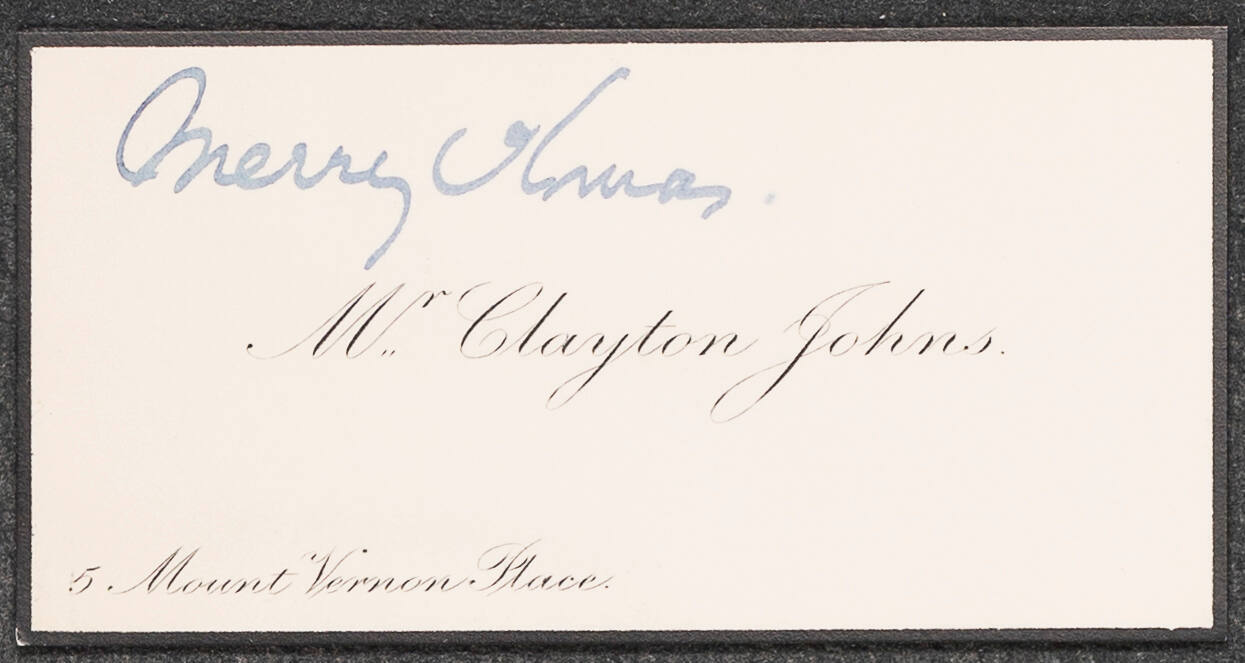 Merry Xmas.
Mr. Clayton Johns.
5. Mount Vernon Place.